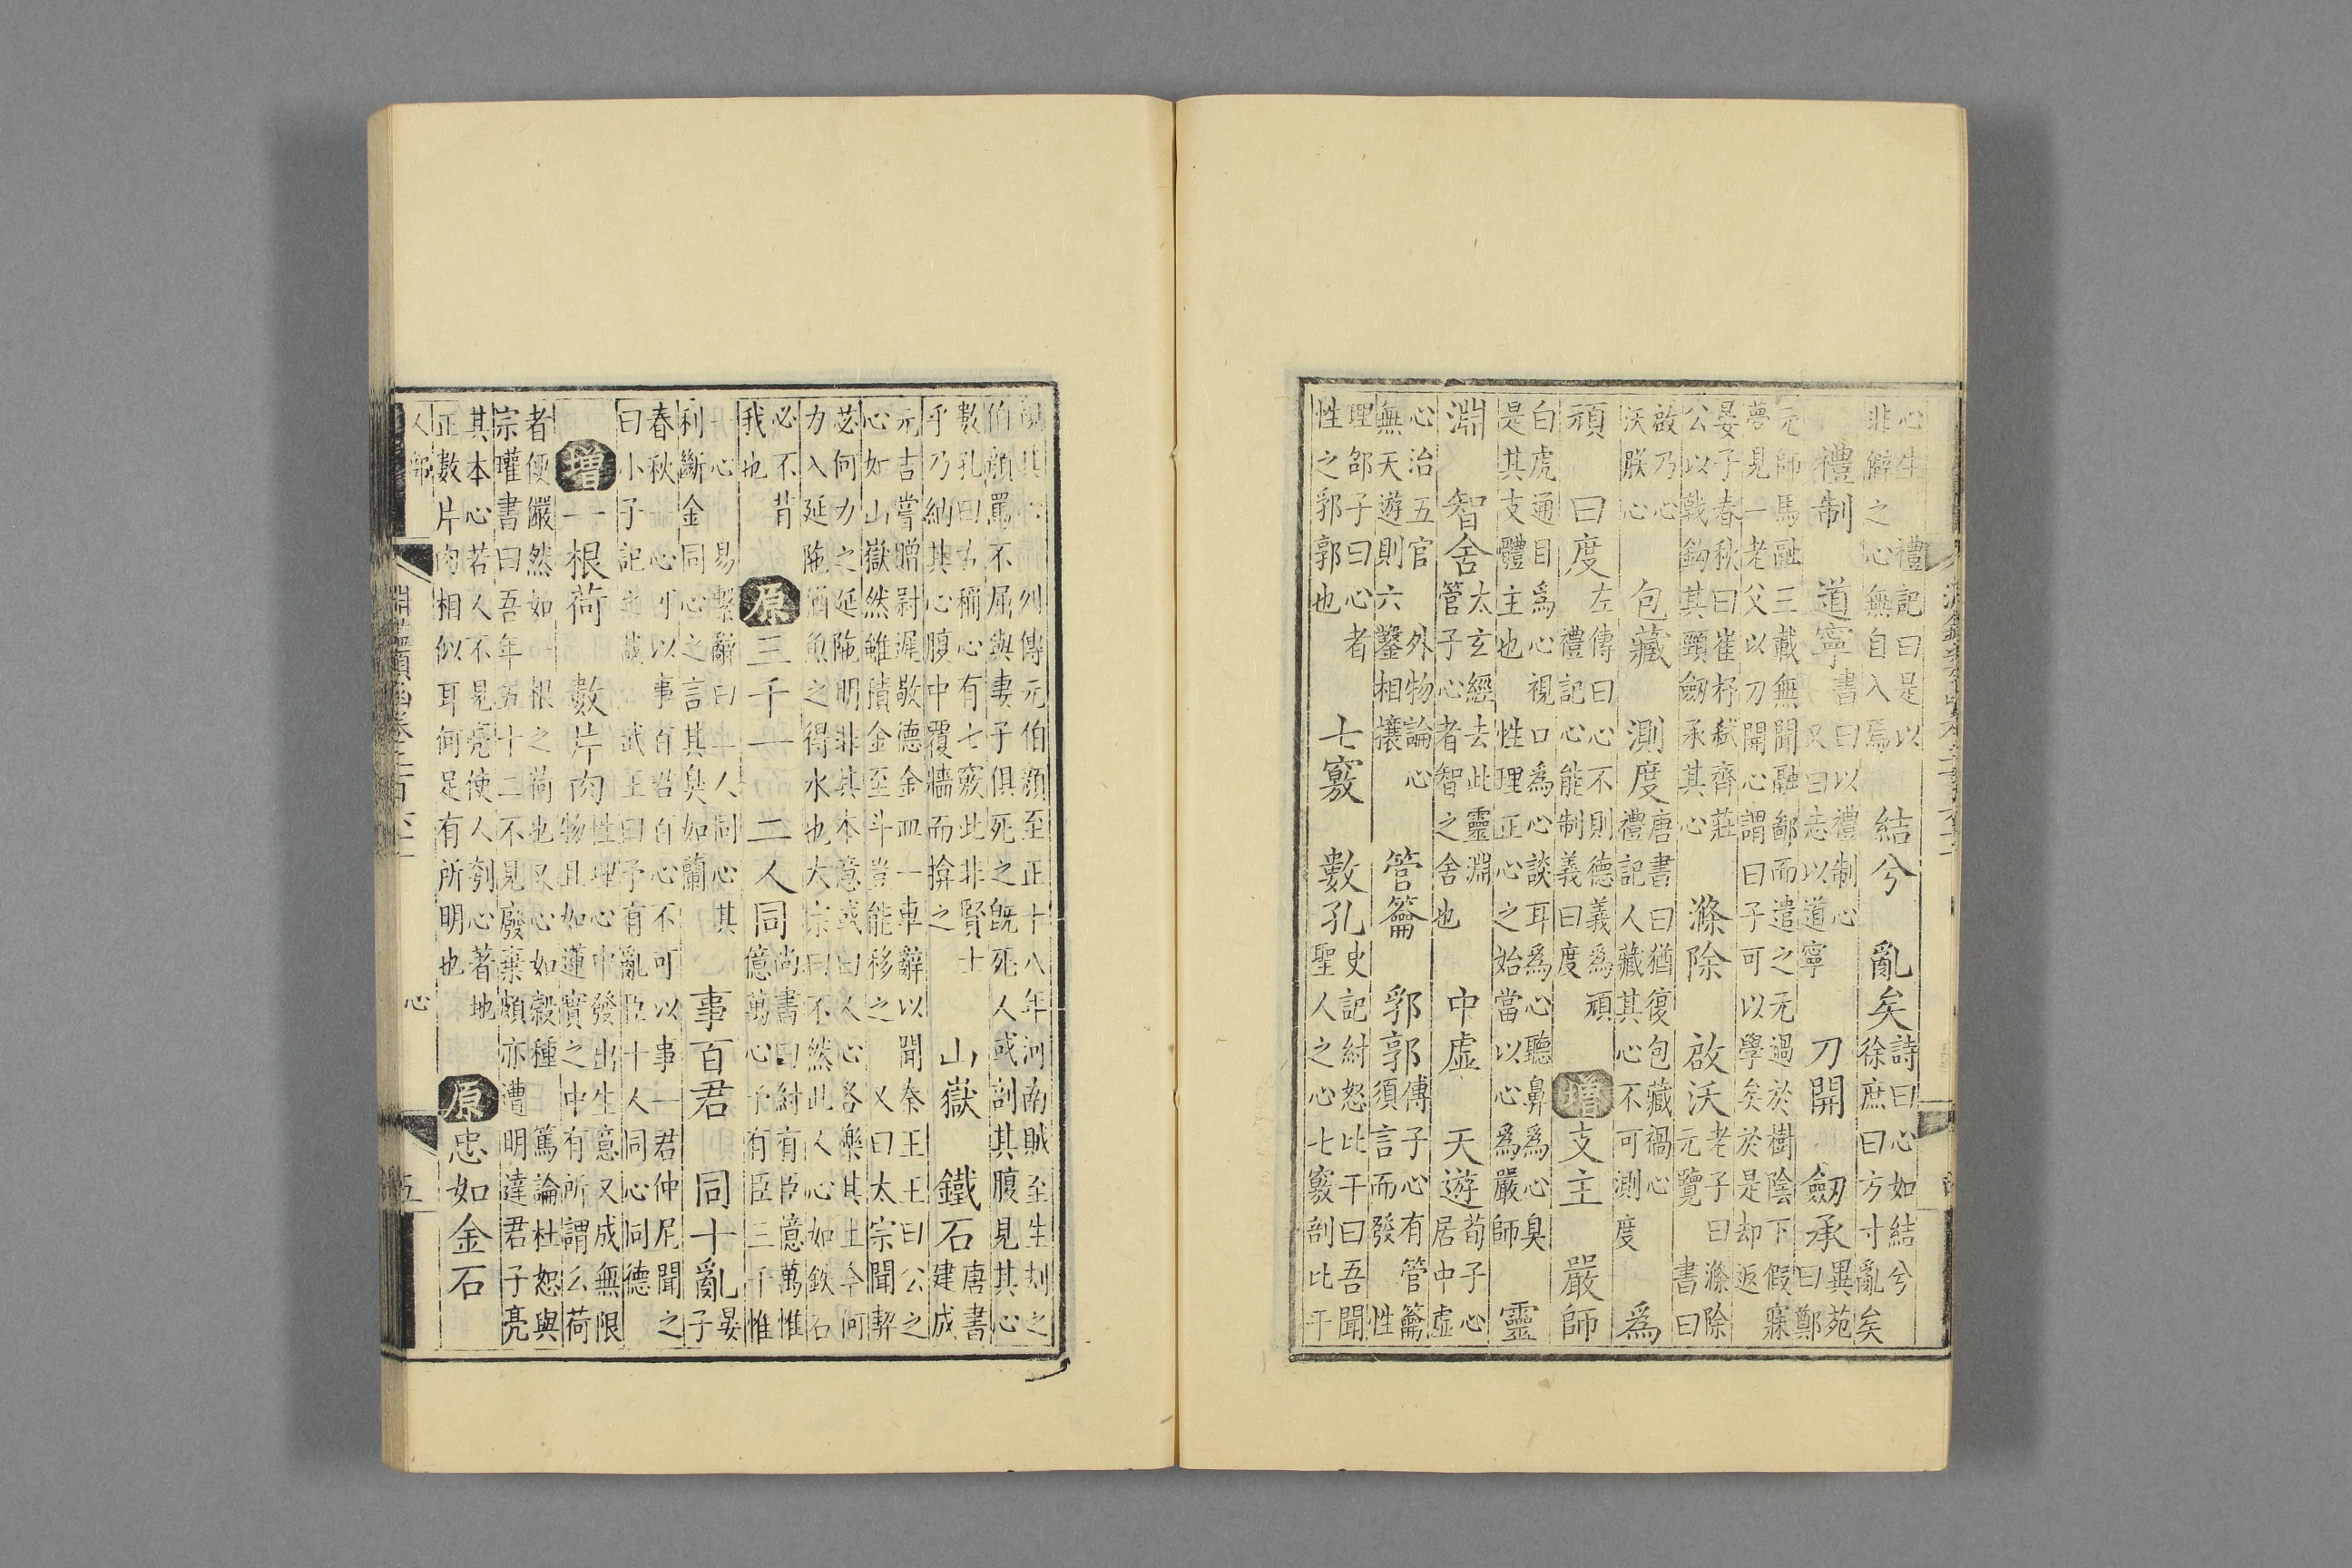 心生　禮記曰是以
非僻之心無自入焉
結兮　亂矣
詩曰心如結兮
徐庶曰方寸亂矣
禮制　道寧
書曰以禮制心
又曰志以道寧
刀開　劒承
異苑
曰鄭
元師馬融三載無聞融鄙而遣之元過於樹陰下假寐
夢見一老父以刀開心謂曰子可以學矣於是却返
晏子春秋曰崔杼弑齊莊
公以戟鈎其頸劒承其心
滌除　啟沃
老子曰滌除
元覽　書曰
啟乃心
沃朕心
包藏　測度
唐書曰猶復包藏禍心
禮記人藏其心不可測度
爲
頑　曰度
左傳曰心不則德義爲頑
禮記心能制義曰度
增支主　嚴師
白虎通目爲心視口爲心談耳爲心聽鼻爲心臭
是其支體主也　性理正心之始當以心爲嚴師
靈
淵　智舍
太玄經去此靈淵
管子心者智之舍也
中虛　天遊
荀子心
居中虛
心治五官　外物論心
無天遊則六鑿相攘
管籥　郛郭
傅子心有管籥
須言而發　性
理邵子曰心者
性之郛郭也
七竅　數孔
史記紂怒比干曰吾聞
聖人之心七竅剖比干
視其心　列傳元伯顏至正十八年河南賊至生刲之
伯顏罵不屈與妻子俱死之既死人或剖其腹見其心
數孔曰古稱心有七竅此非賢士
乎乃納其心腹中覆牆而揜之
山嶽　鐵石
唐書
建成
元吉嘗贈尉遲敬德金皿一車辭以聞秦王王曰公之
心如山嶽然雖積金至斗豈能移之　又曰太宗聞契
苾何力之延陁明非其本意或曰人心各樂其土今何
力入延陁猶魚之得水也太宗曰不然此人心如鐵石
必不背
我也
原三千一　二人同
尚書曰紂有臣億萬惟
億萬心予有臣三千惟
一心　易繫辭曰二人同心其
利斷金同心之言其臭如蘭
事百君　同十亂
晏
子
春秋一心可以事百君百心不可以事一君仲尼聞之
曰小子記之　武王曰予有亂臣十人同心同德
增一根荷　數片肉
性理心中發出生意又成無限
物且如蓮實之中有所謂幺荷
者便儼然如一根之荷也又心如穀種　篤論杜恕與
宗瓘書曰吾年五十二不見廢棄頗亦遭明達君子亮
其本心若人不見亮使人刳心著地
正數片肉相似耳何足有所明也
原忠如金石
人部　心　五